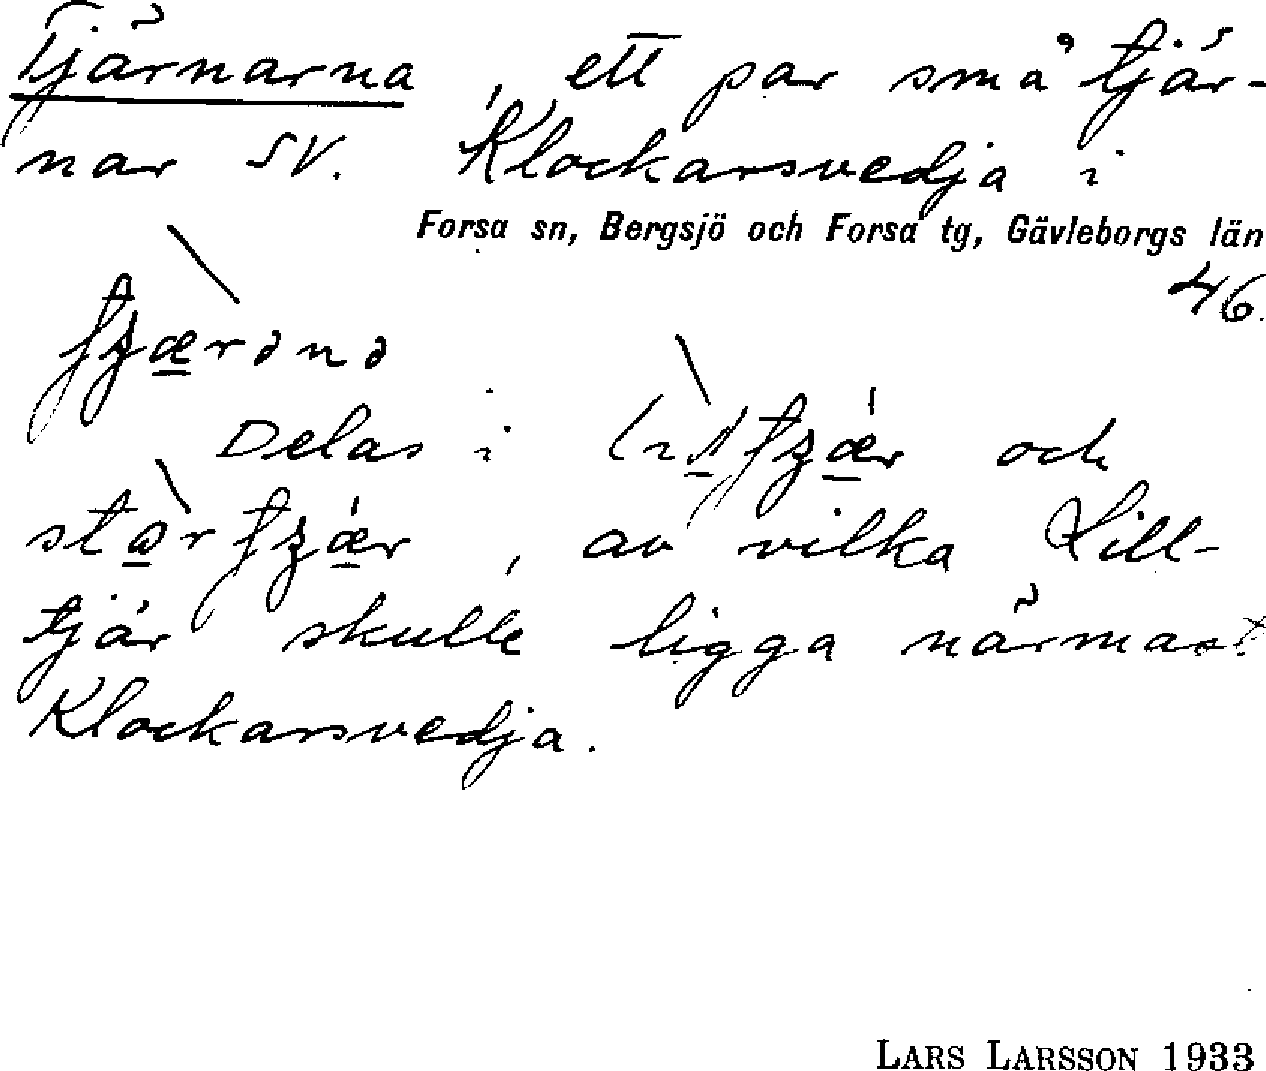 Tjärnarna, ett par små tjär-
nar SV. Klockarsvedja i
Forsa sn, Bergsjö och Forsa tg, Gävleborgs län
46.
Delas i och
, av vilka Lill-
tjär skulle ligga närmast
Klockarsvedja.
LARS LARSSON 1933